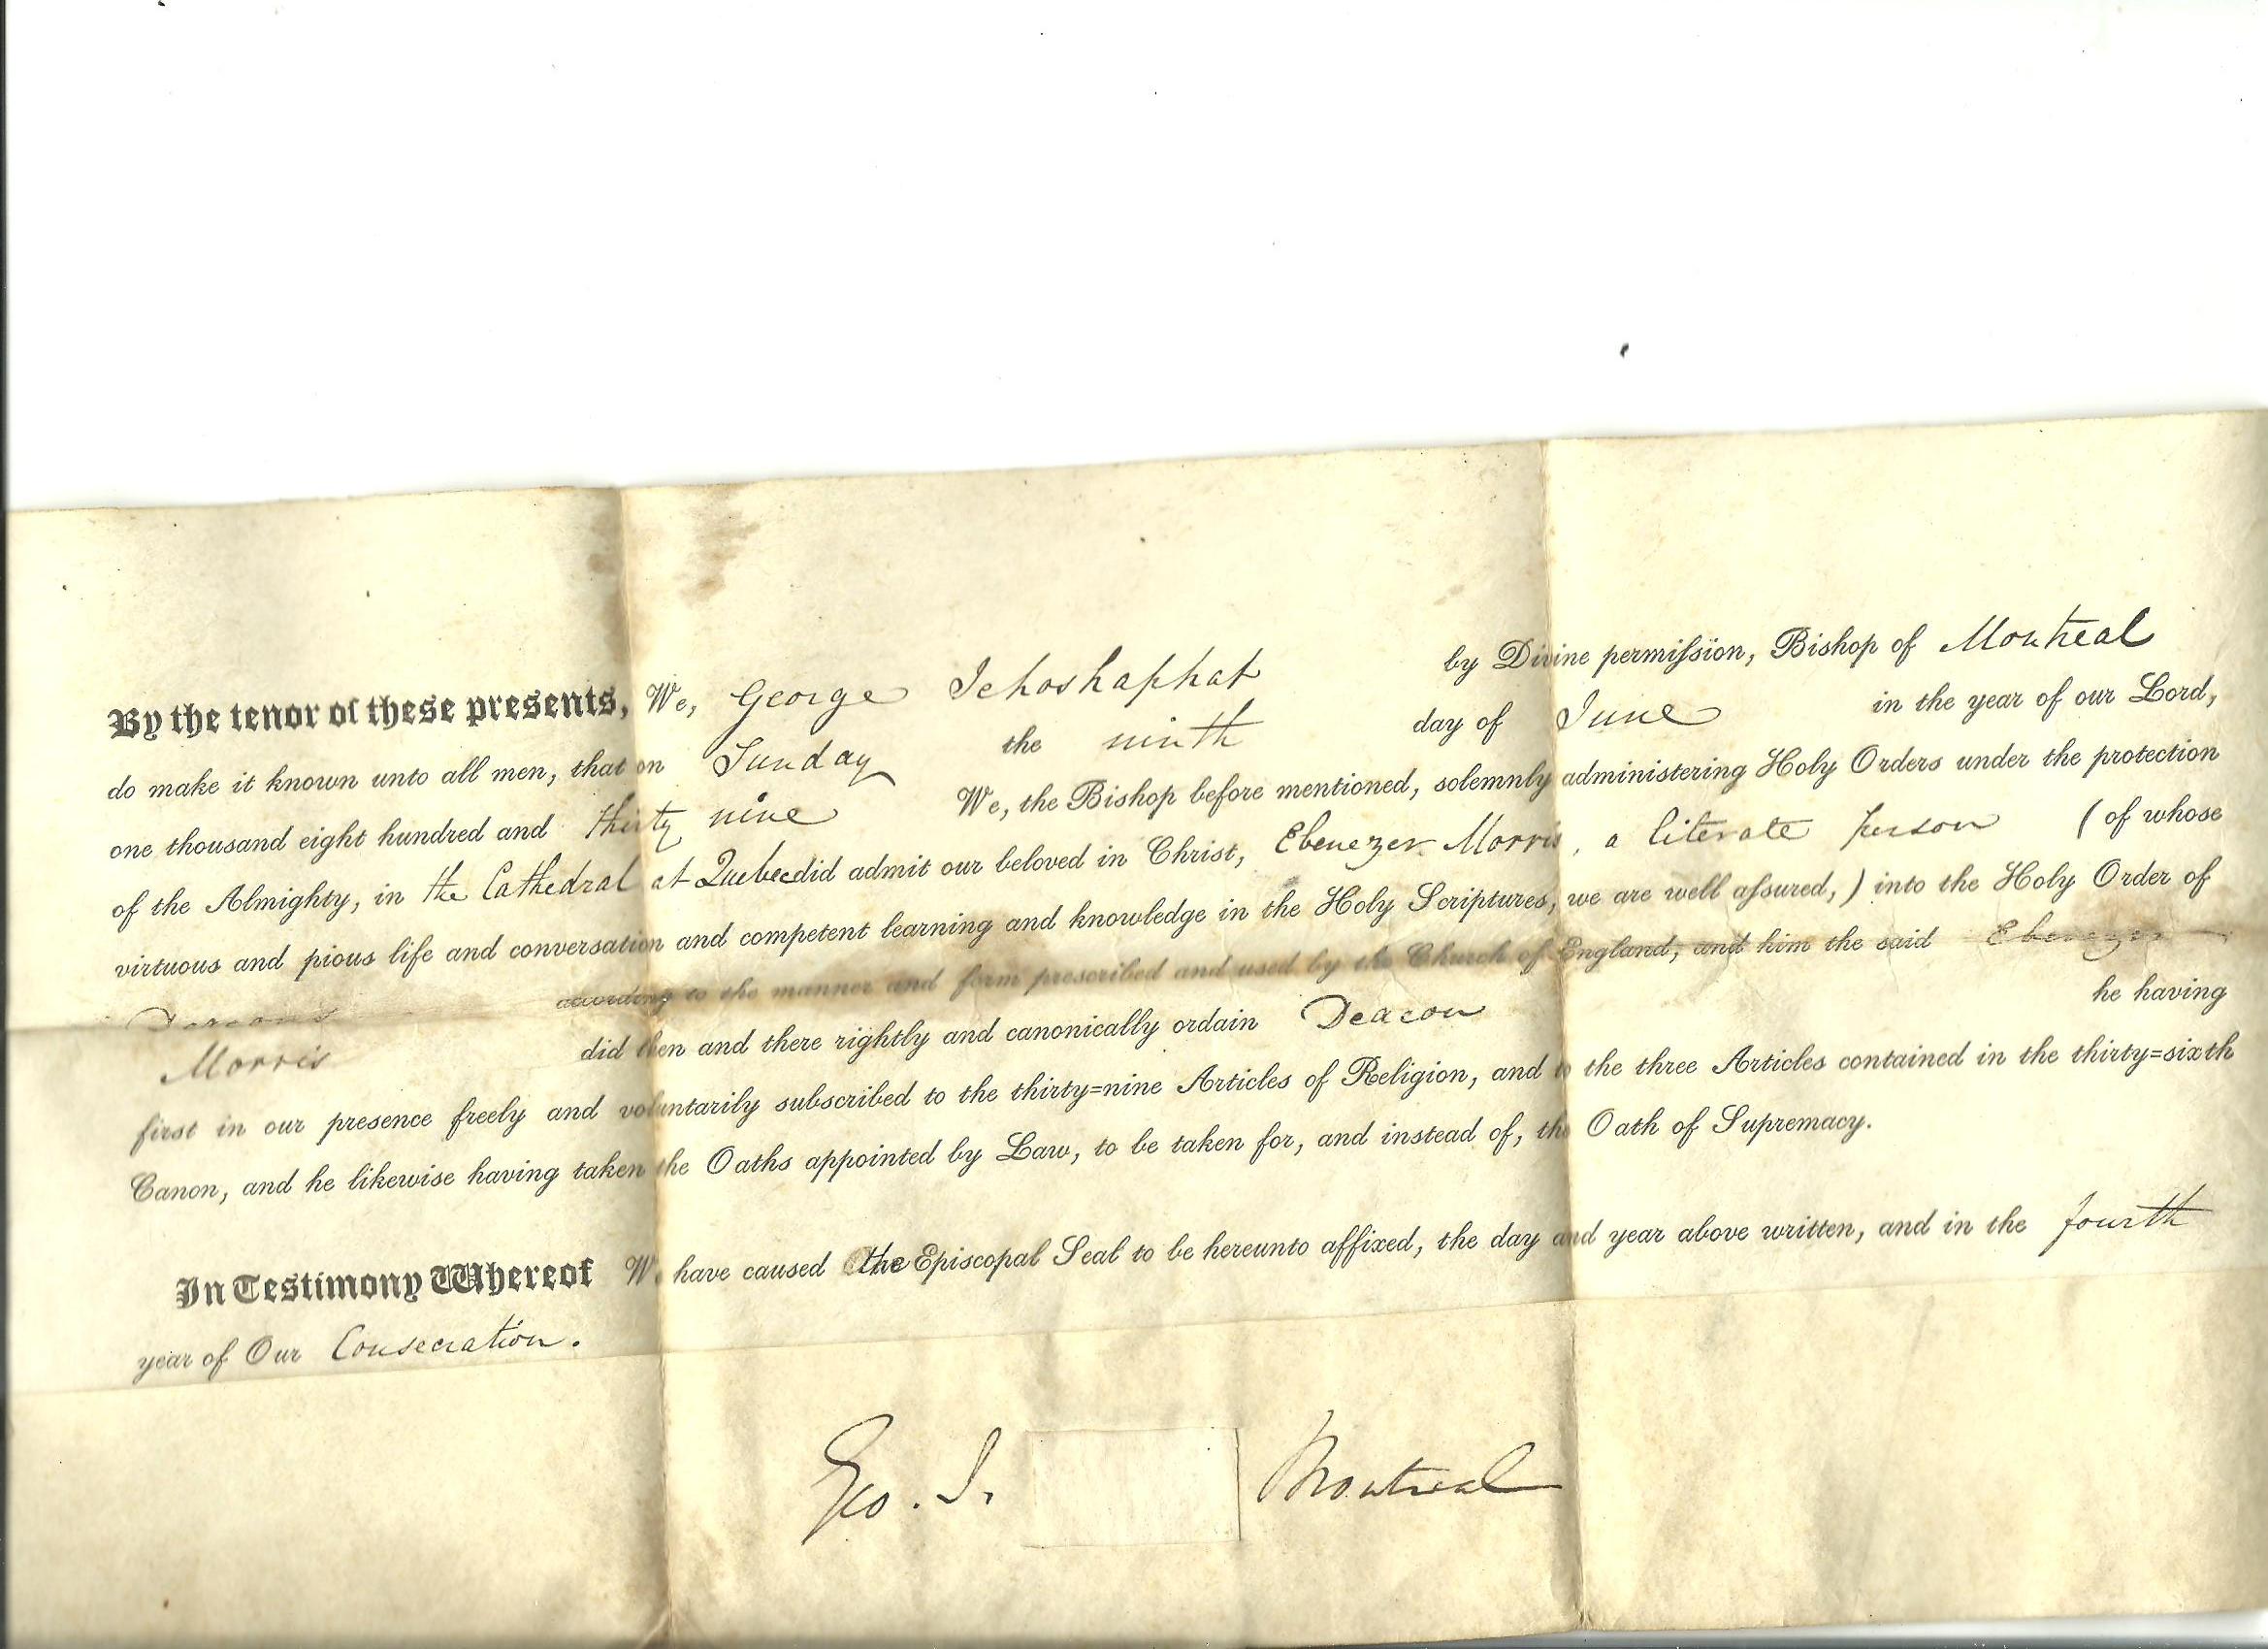 By the tenor of these presents, We, George Jehoshaphat by Divine permission, Bishop of Montreal
do make it known unto all men, that on Sunday the ninth day of June in the year of our Lord,
one thousand eight hundred and thirty nine We, the Bishop before mentioned, solemnly administering Holy Orders under the protection
of the Almighty, in the Cathedral at Quebec did admit our beloved in Christ, Ebenezer Morris, a literate person (of whose
virtuous and pious life and conversation and competent learning and knowledge in the Holy Scriptures, we are well assured,) into the Holy Order of
Deacons according to the manner and form prescribed and used by the Church of England, and him the said Ebenezer
Morris did then and there rightly and canonically ordain Deacon he having
first in our presence freely and voluntarily subscribed to the thirty=nine Articles of Religion, and to the three Articles contained in the thirty=sixth
Canon, and he likewise having taken the Oaths appointed by Law, to be taken for, and instead of, the Oath of Supremacy.
In Testimony Whereof We have caused the Episcopal Seal to be hereunto affixed, the day and year above written, and in the fourth
year of Our Consecration.
Geo. J. Montreal